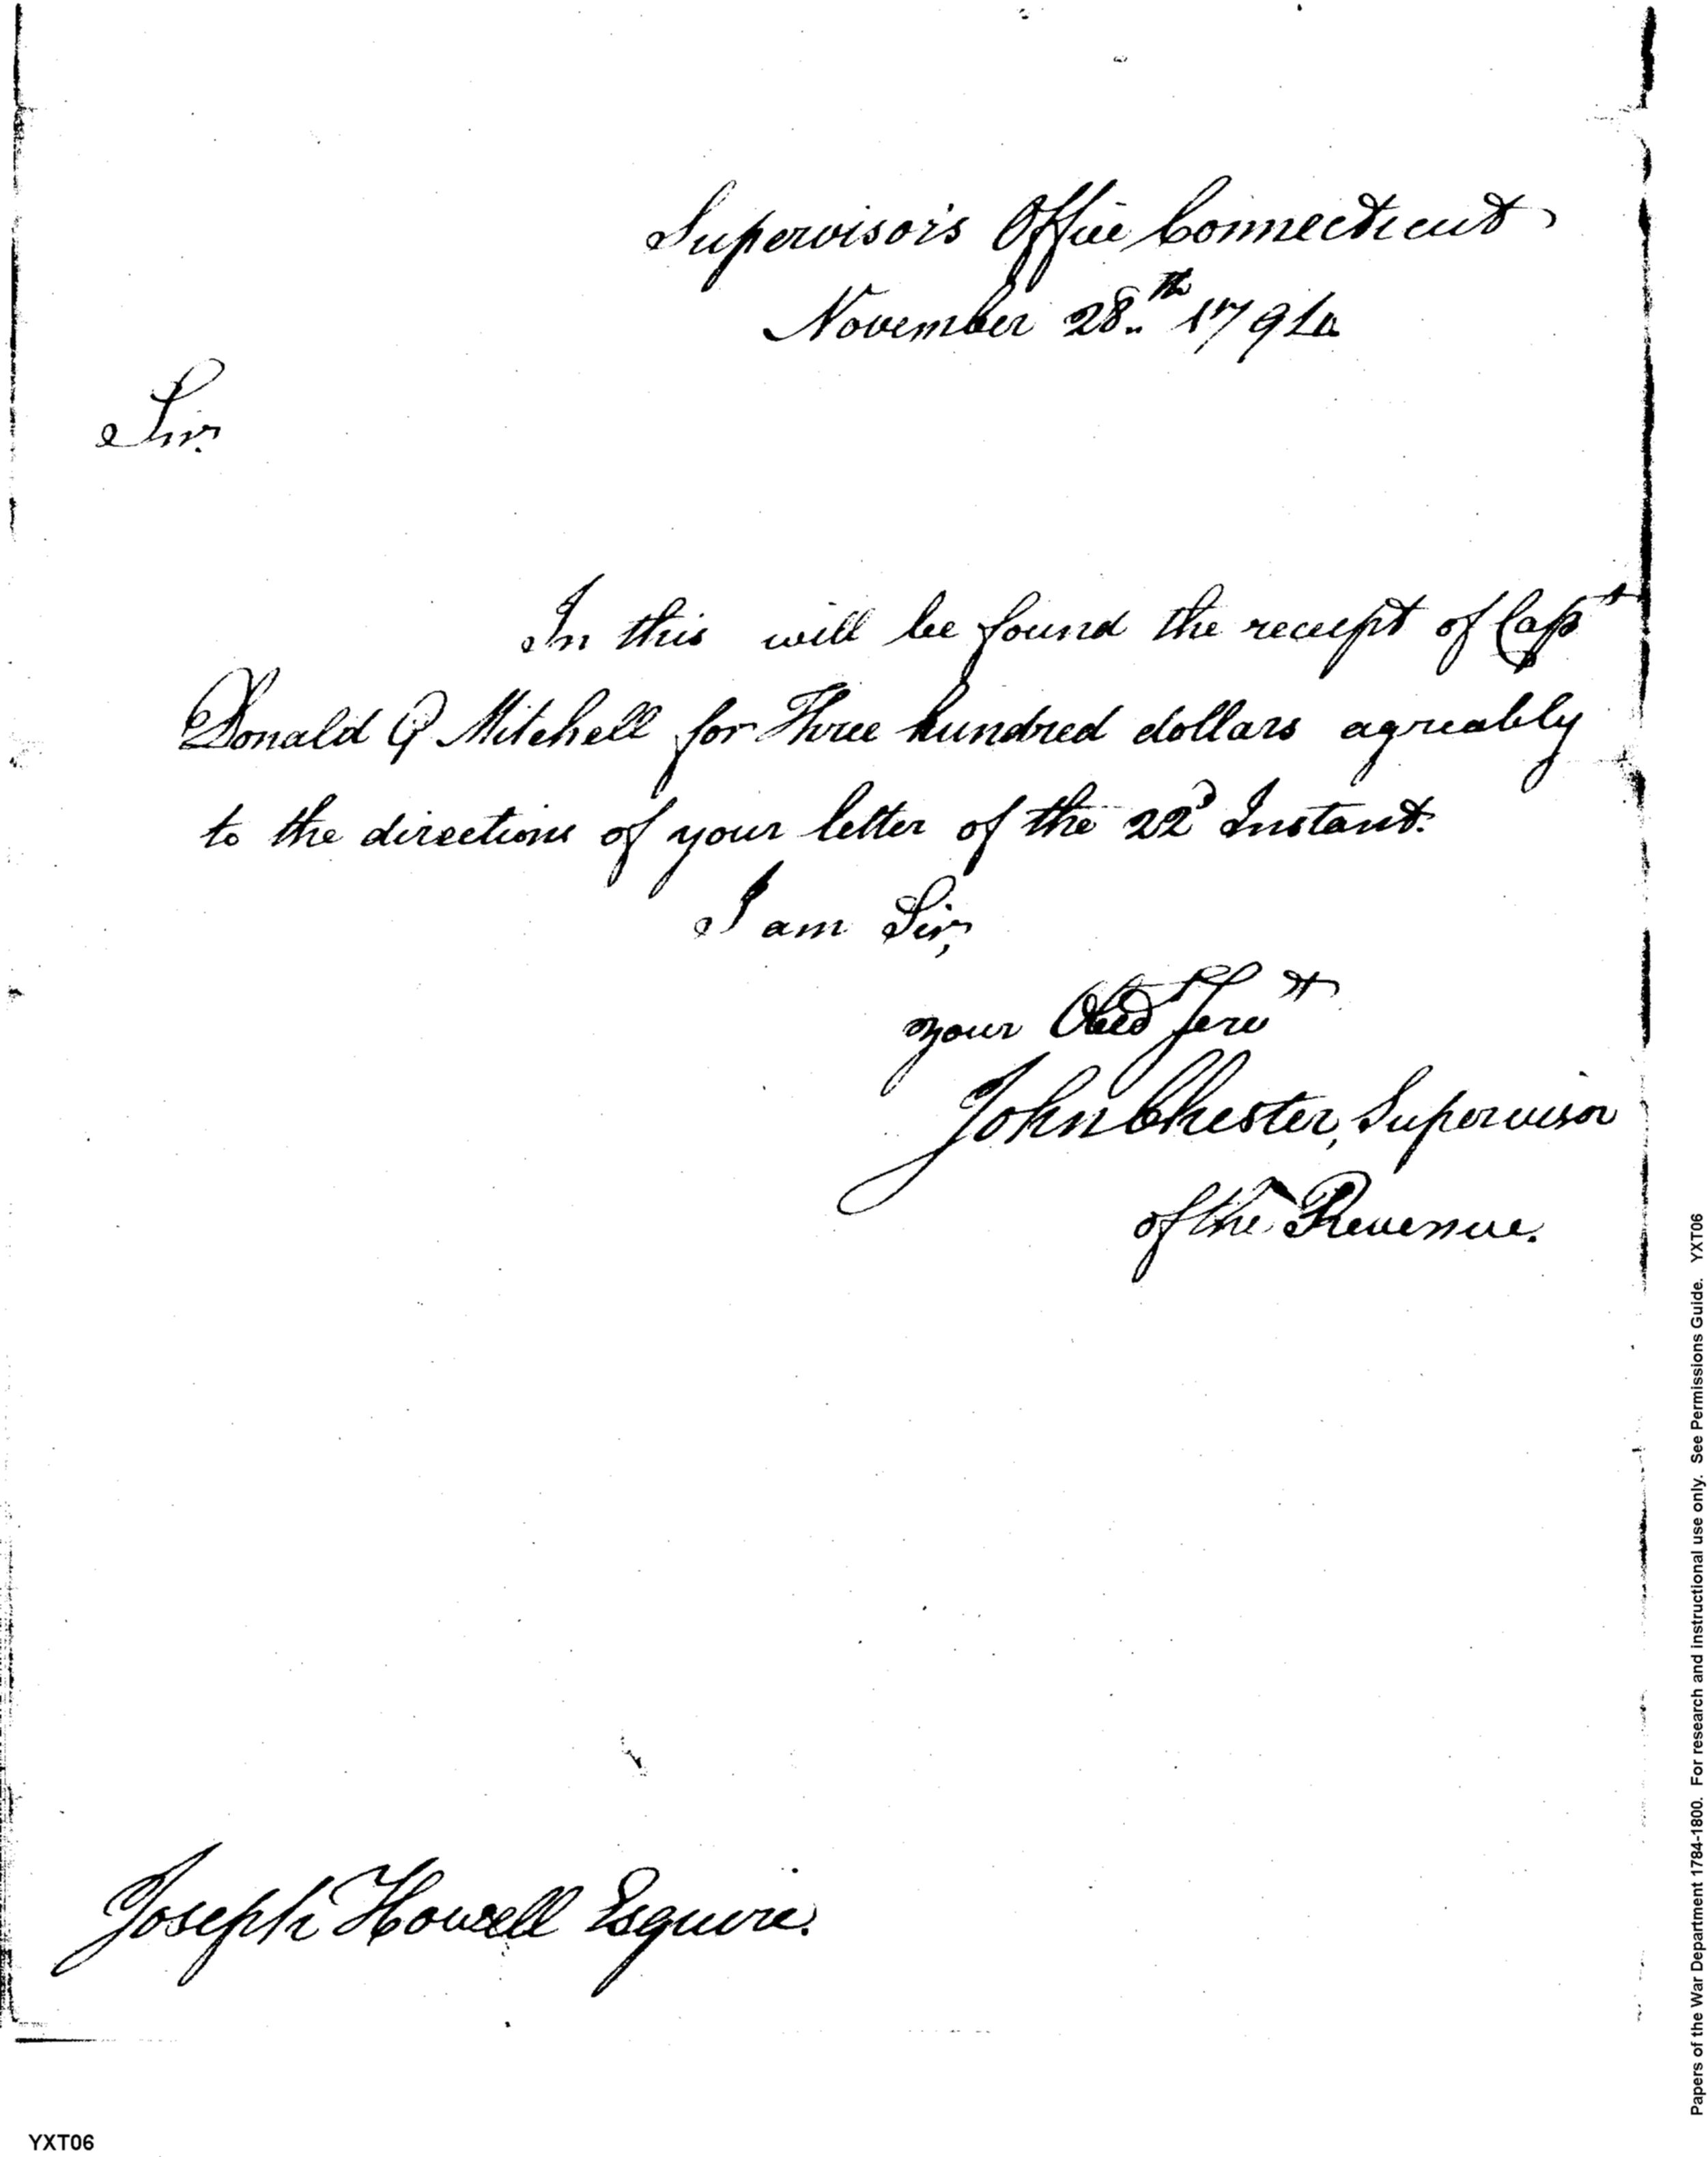 Supervisor's Office Connecticut
November 28th 1794
Sir.
In this will be found the receipt of Capt
Donald G Mitchell for Three hundred dollars agreably
to the directions of your letter of the 22d Instant.
I am Sir,
your Obed Servt
John Chester, Supervisor
of the Revenue.
Joseph Howell Esquire.
YXT06
Papers of the War Department 1784-1800. For research and instructional use only. See Permissions Guide. YXT06